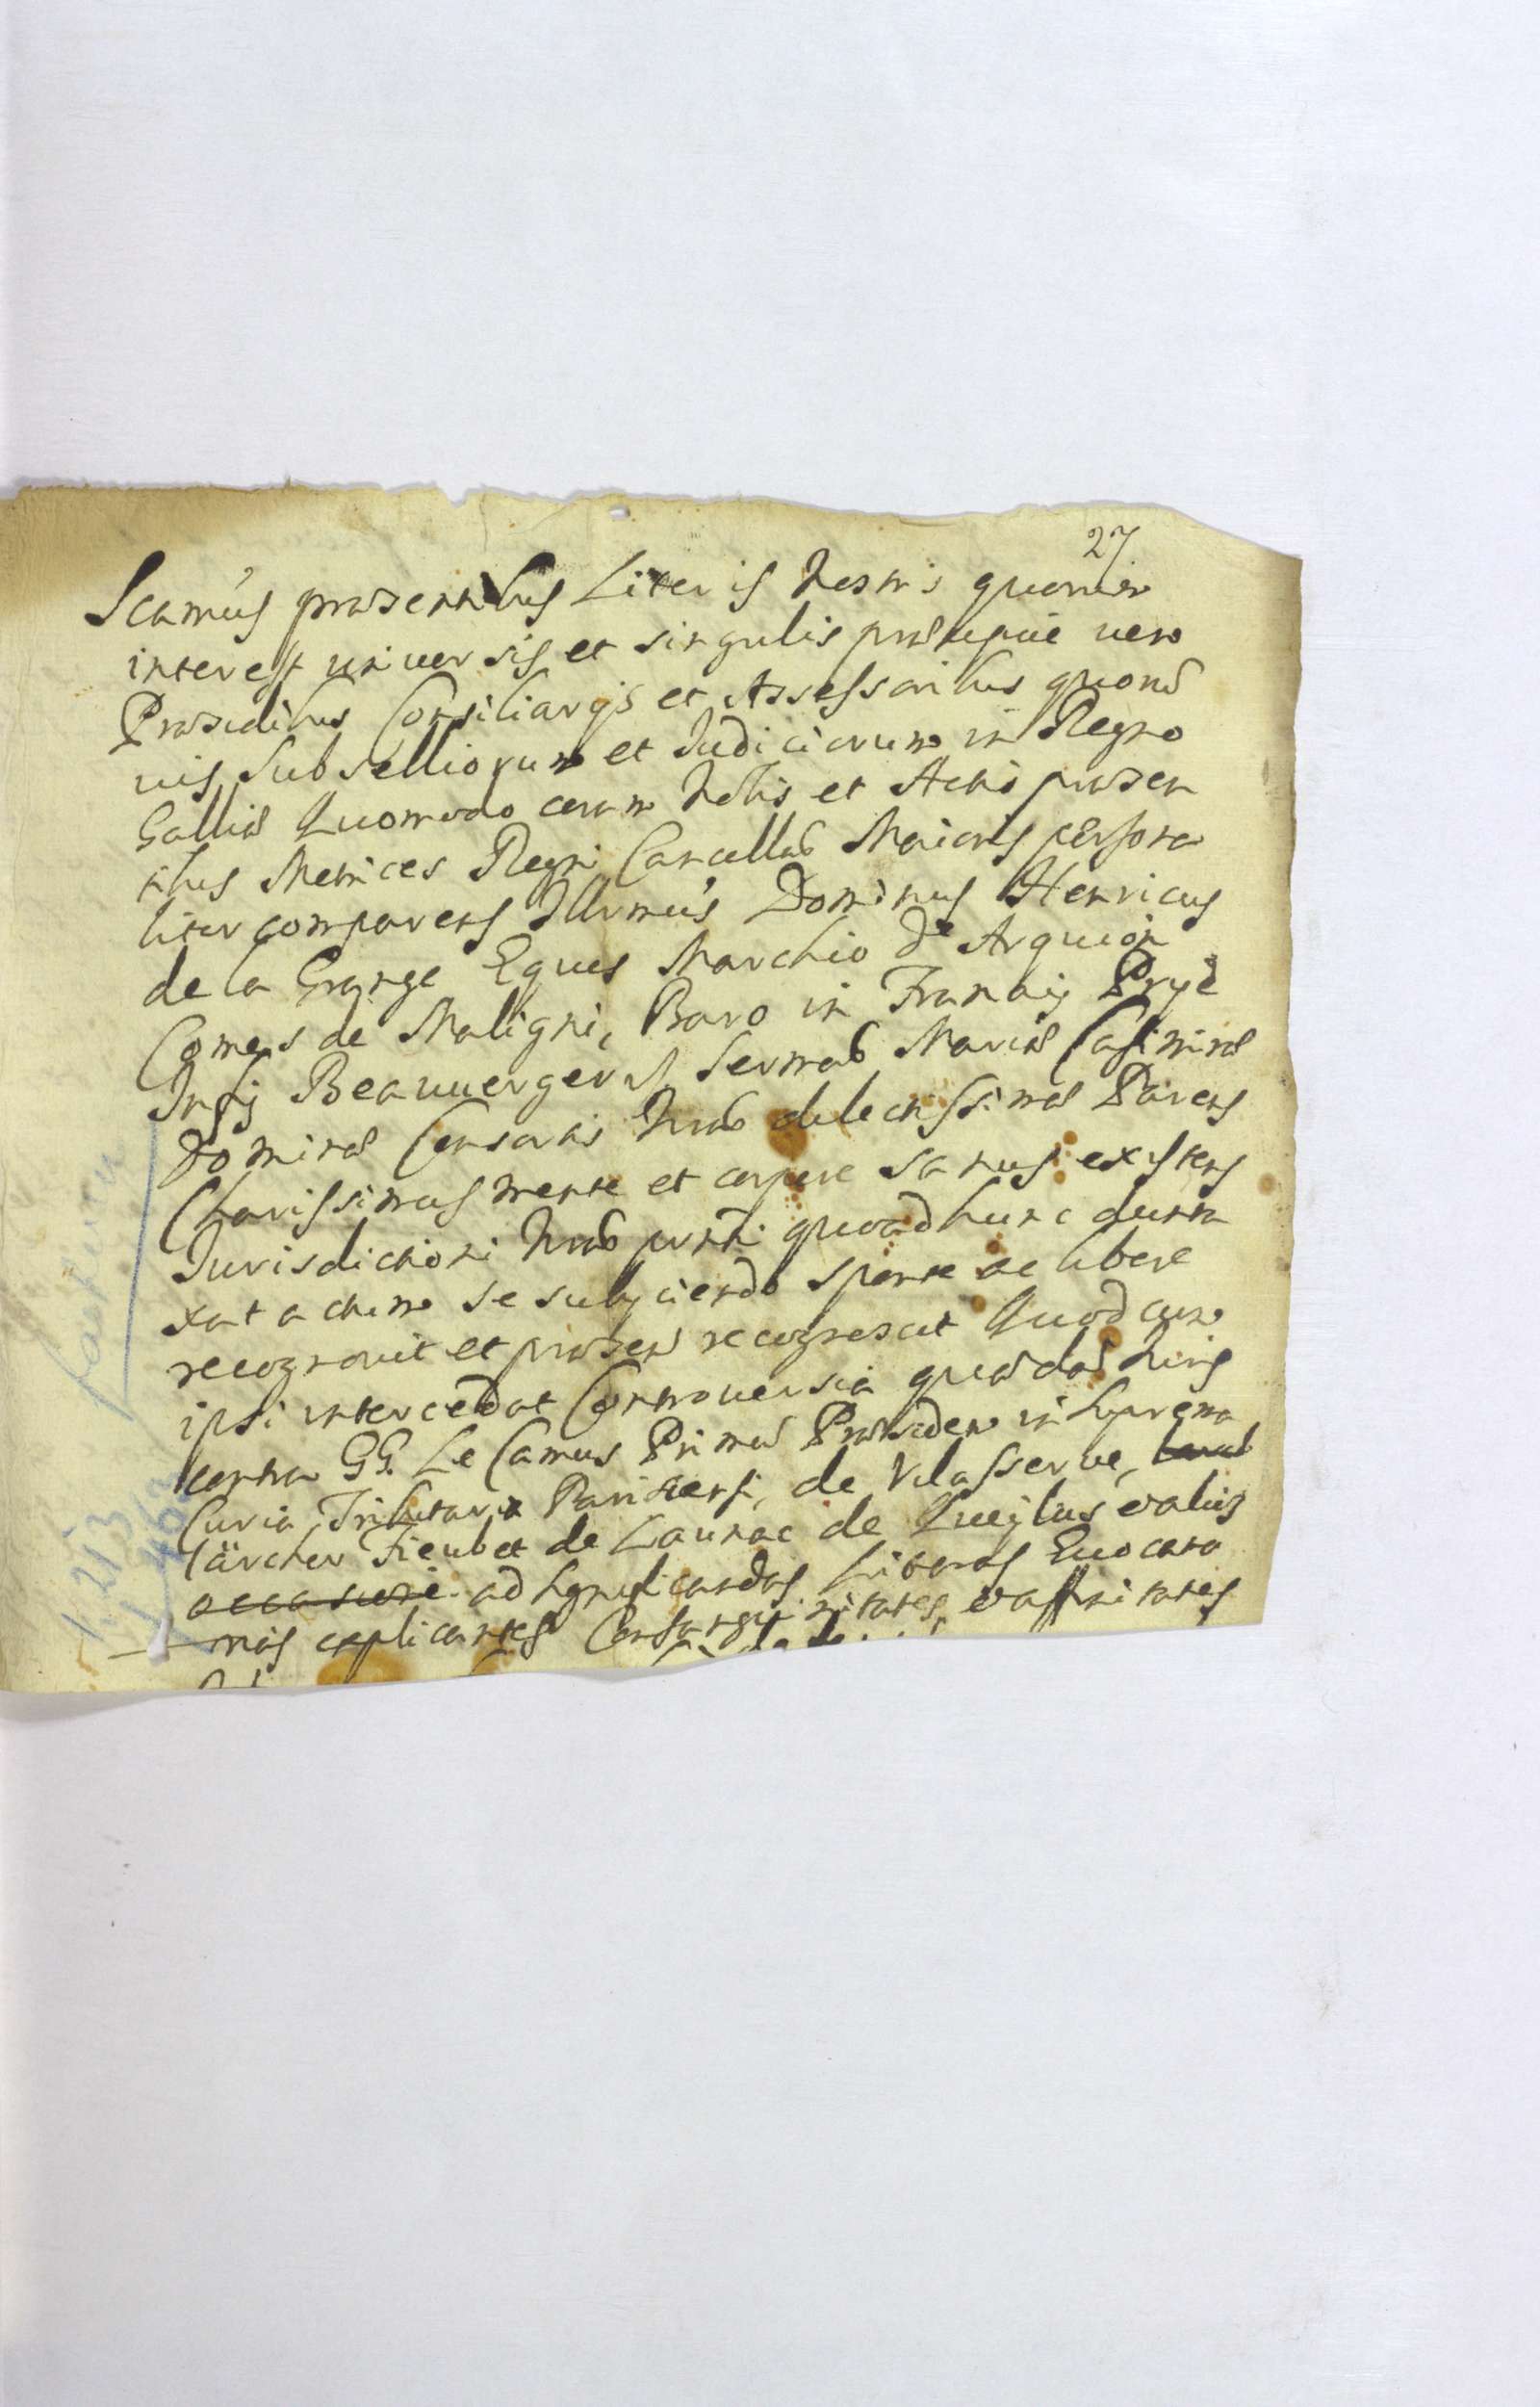 27
Scamus praesentibus Literis Nostris quorum
interest universis et singulis praecipue vero
Praesidibus Consiliarijs et Assessoribus quorū
vis Subselliorum et Judiciorum in Regno
Galliae Quomodo coram Nobis et Actis praesen
tibus Metrices Regni Cancellae Maioris persona
liter comparens Illrmus Dominus Henricus
de la Grange Eques Marchio d'Arquion
Comes de Maligni, Baro in Prye
Beauvergers Sermae Mariae Casimirae
Dominae Consortis Nrae dilectissimae Parens
Charissimus mente et corpore sanus existens
Jurisdictioni Nrae prnti quoad hunc dunta
xat actum se subjiciendo sponte ac libere
recognovit et praesen recognescit Quod cum
ipsi intercedat Controversia quaedam Juris
contra GG. Le Camus Primū Praesidem in Suprema
Curia Tributaria Parisiensi, de Vilasserve,
Larcher Fieubet de Launac de Queylus et alios
ad significandas Literas Evocato
rias explicantes Consanguinitates, et affinitates